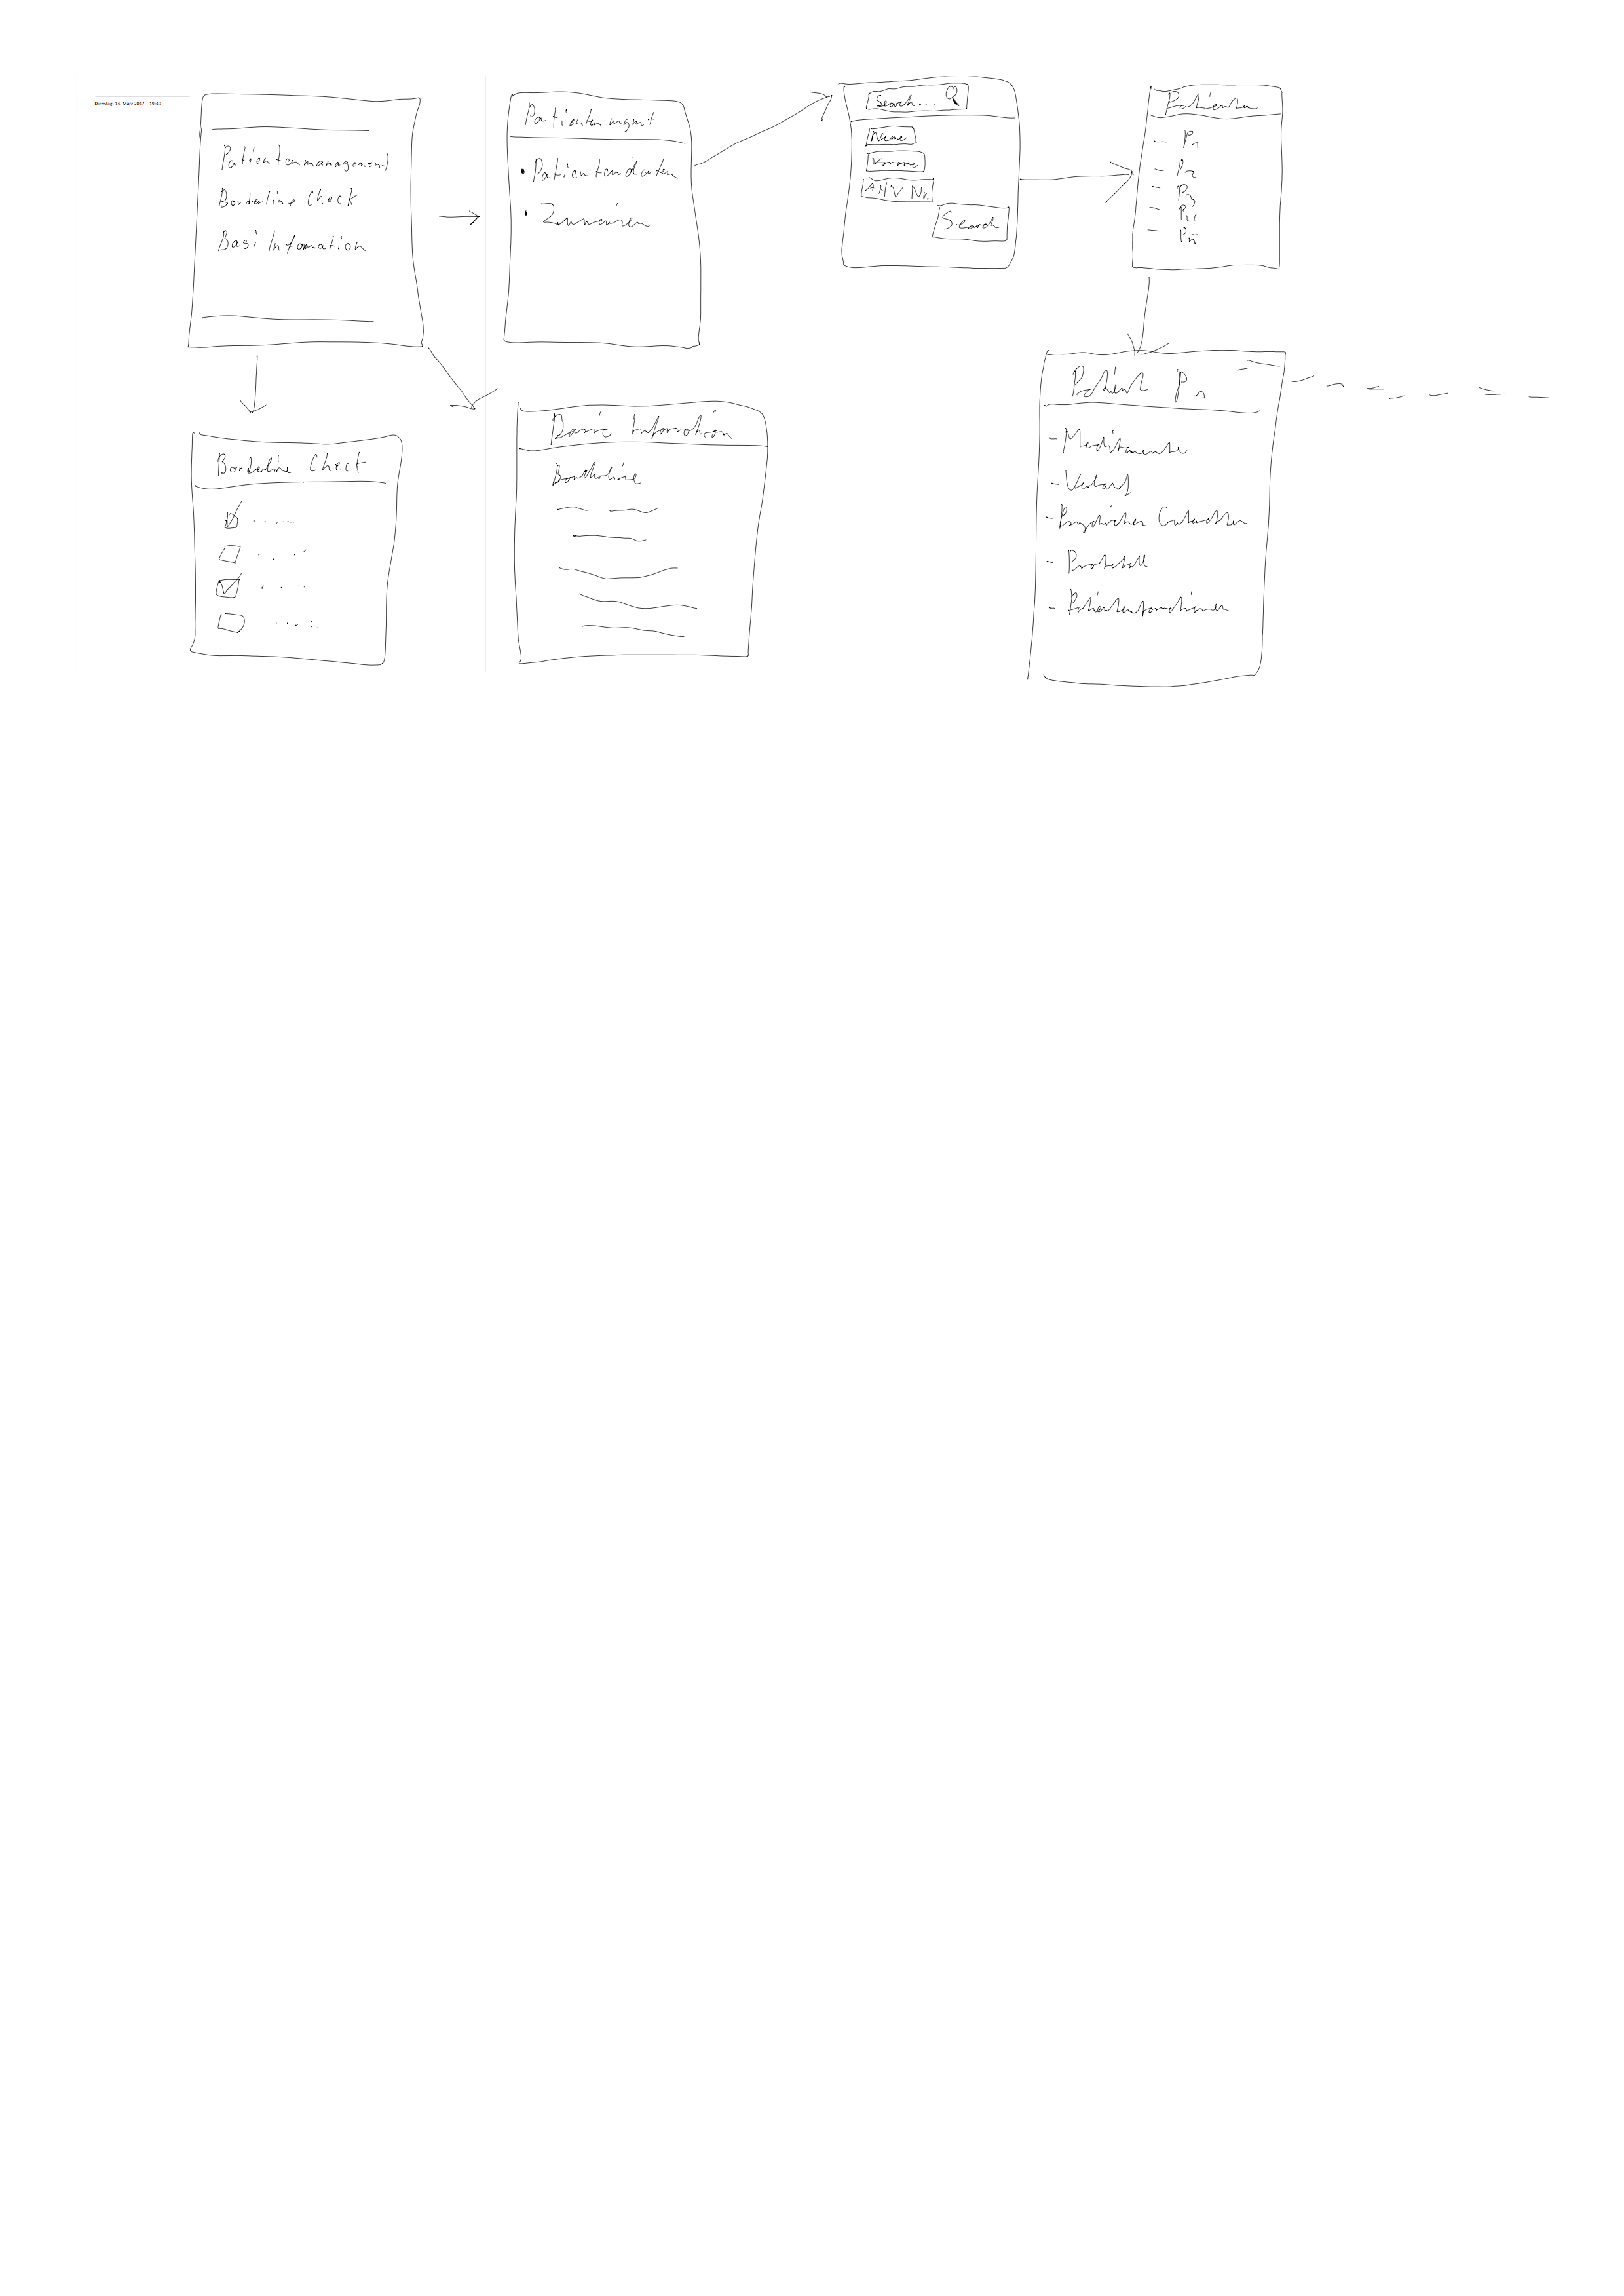 Dienstag, 14. März 2017 19:40
Patientenmanagement
Borderline Check
Basi Information
Patienten mgmt
• Patientendaten
• Zuweisen
Search...
Name
Vorname
AHV Nr.
Search
Patienten
- P1
- P2
- P3
- P4
- Pn
Borderline Check
Basic Information
Borderline
Patient P1
- Medikamente
- Verlauf
- Psychischer Gutachten
- Protokoll